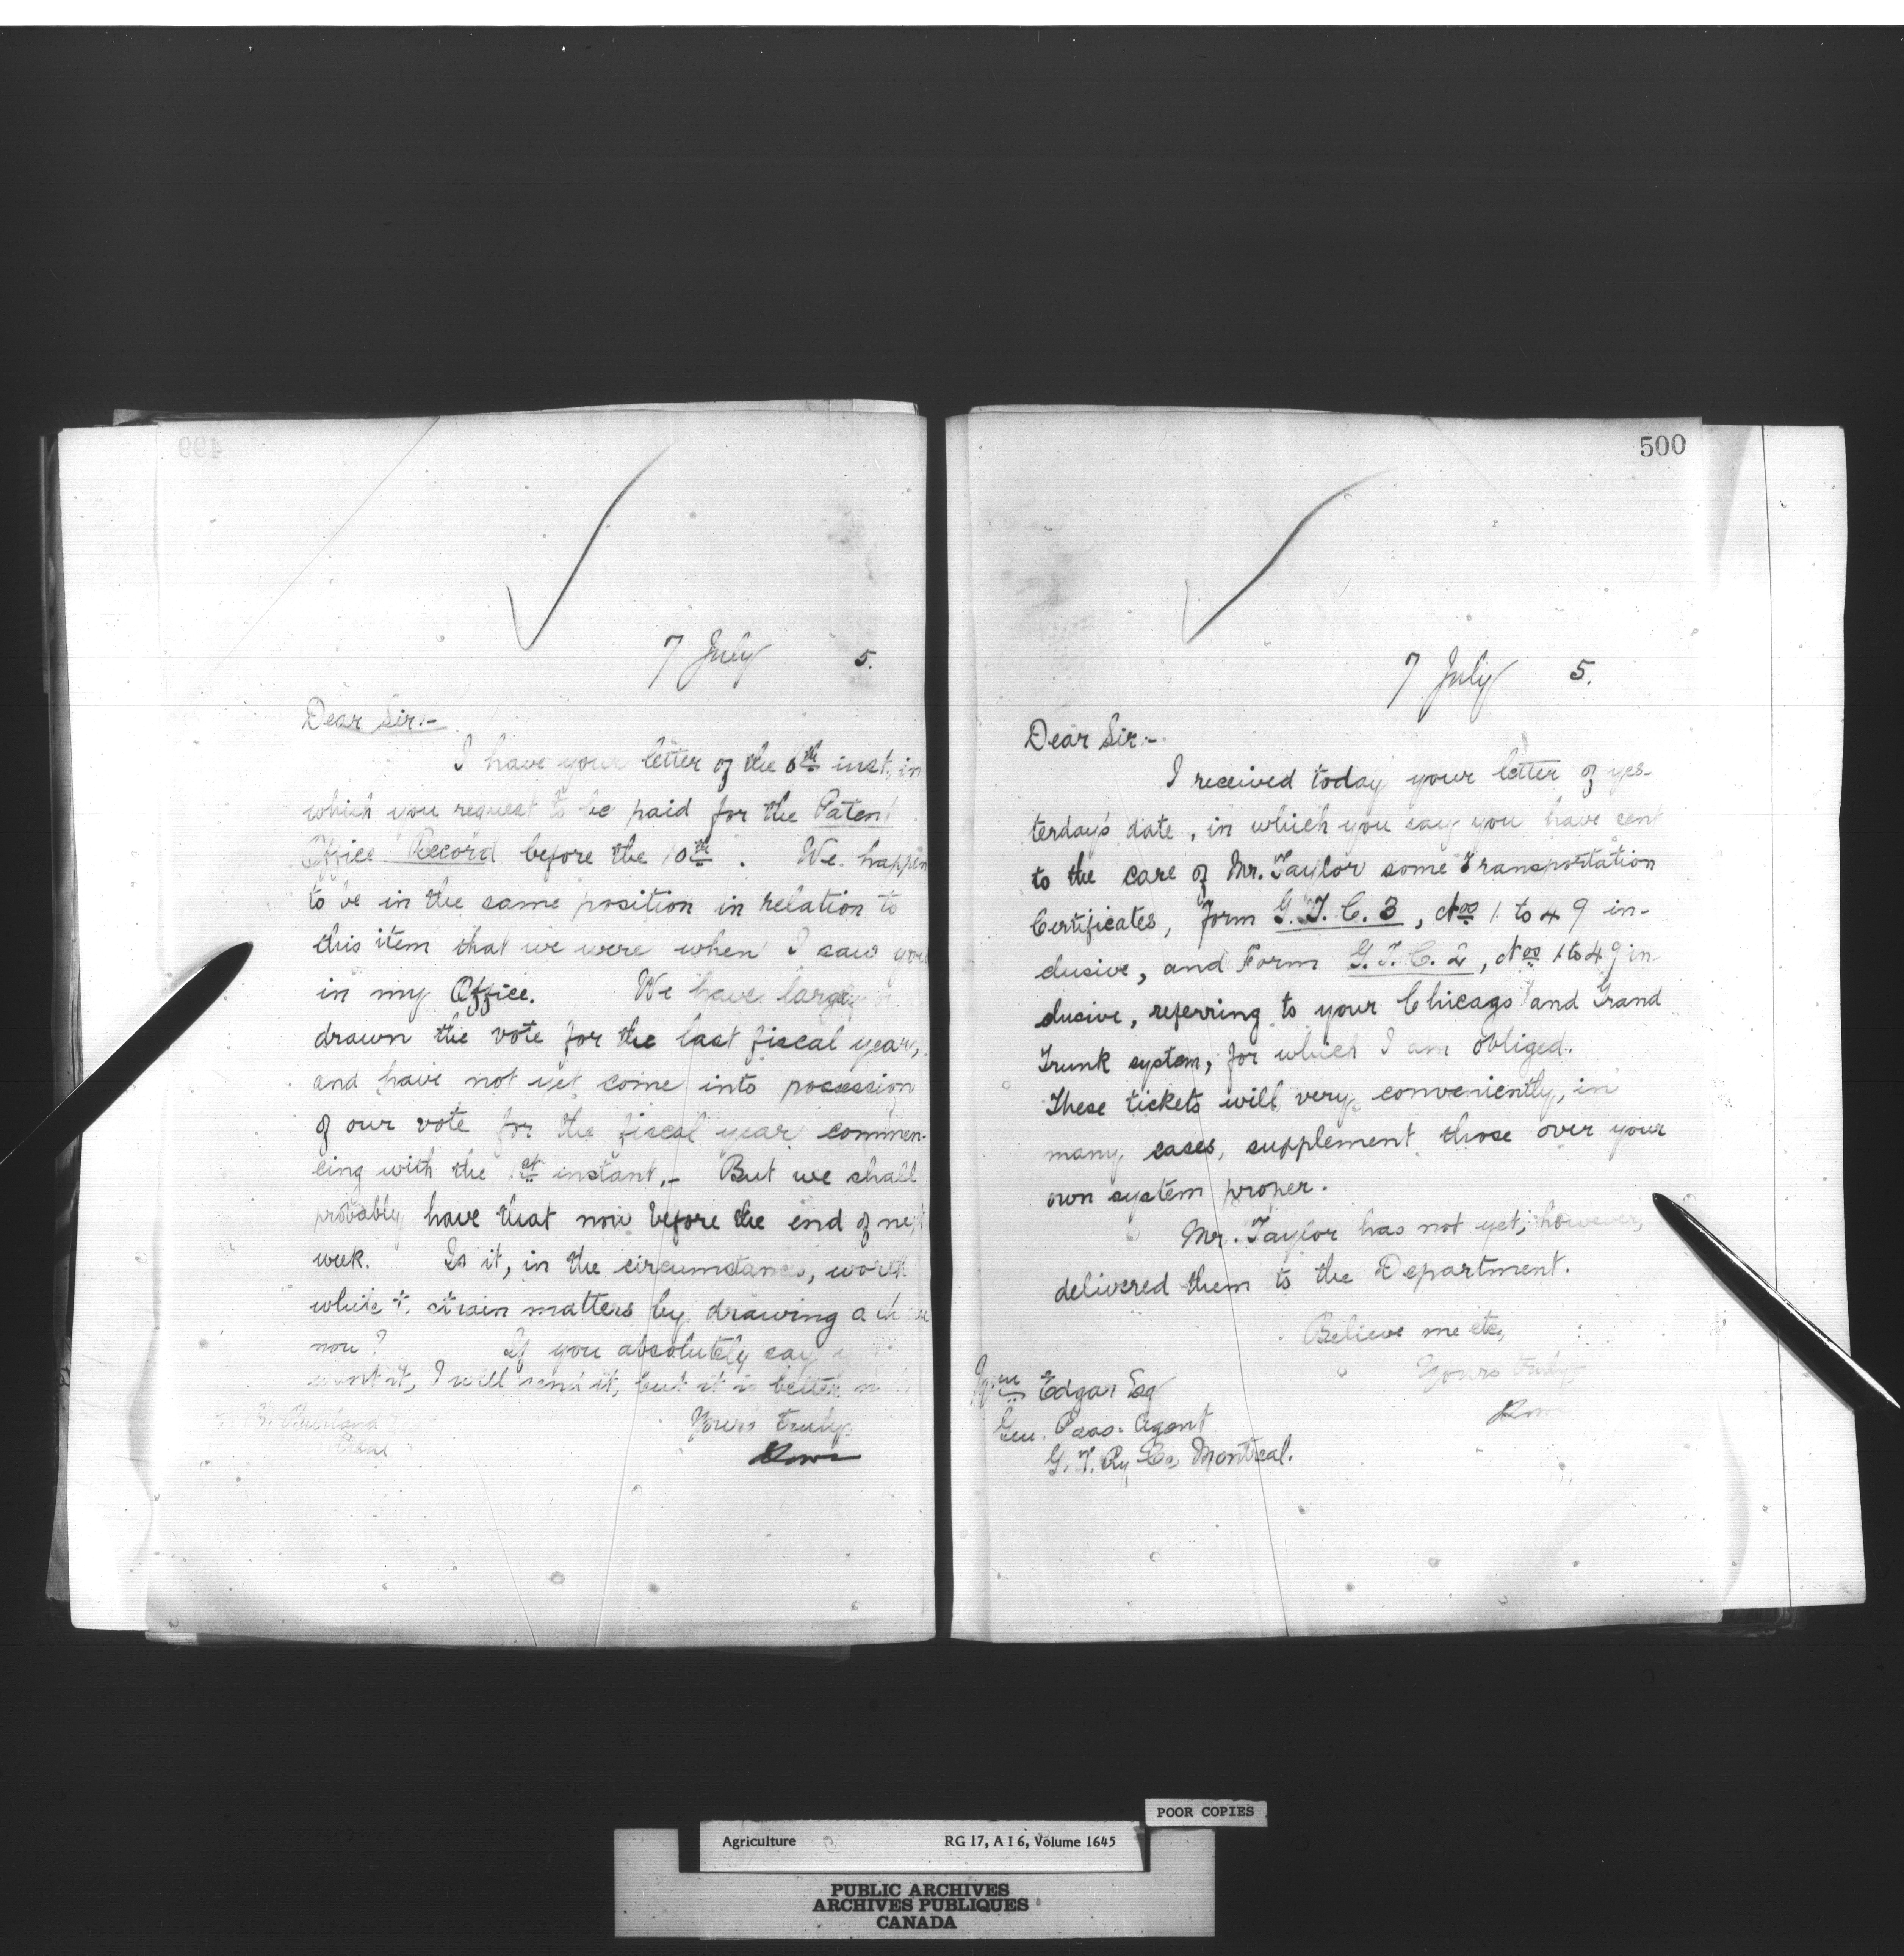 499
7 July 5.
Dear Sir:-
I have your letter of the 6th inst, in
which you request to be paid for the Patent
Office Record before the 10th. We happen
to be in the same position in relation to
this item that we were when I saw you
in my Office. We have largely
drawn the vote for the last fiscal year,
and have not yet come into possession
of our vote for the fiscal year commen-
cing with the 1st instant,- But we shall
probably have that now before the end of next
week. Is it, in the circumstances, worth
while to strain matters by drawing a
now? If you absolutely say
want it, I will send it, but it is better
Yours truly
Burland
500
7 July 5.
Dear Sir:-
I received today your letter of yes-
terday's date, in which you say you have sent
to the care of Mr. Taylor some Transportation
Certificates, Form G.T.C. 3, Nos 1 to 49 in-
clusive, and Form G.T.C. 2, Nos 1 to 49 in-
clusive, referring to your Chicago and Grand
Trunk system, for which I am obliged.
These tickets will very conveniently, in
many cases, supplement those over your
own system proper.
Mr. Taylor has not yet, however,
delivered them to the Department.
Believe me etc,
Yours truly
Wm Edgar Esq
Gen. Pass. Agent
G. T. Ry Co, Montreal.
POOR COPIES
Agriculture RG 17, A I 6, Volume 1645
PUBLIC ARCHIVES
ARCHIVES PUBLIQUES
CANADA